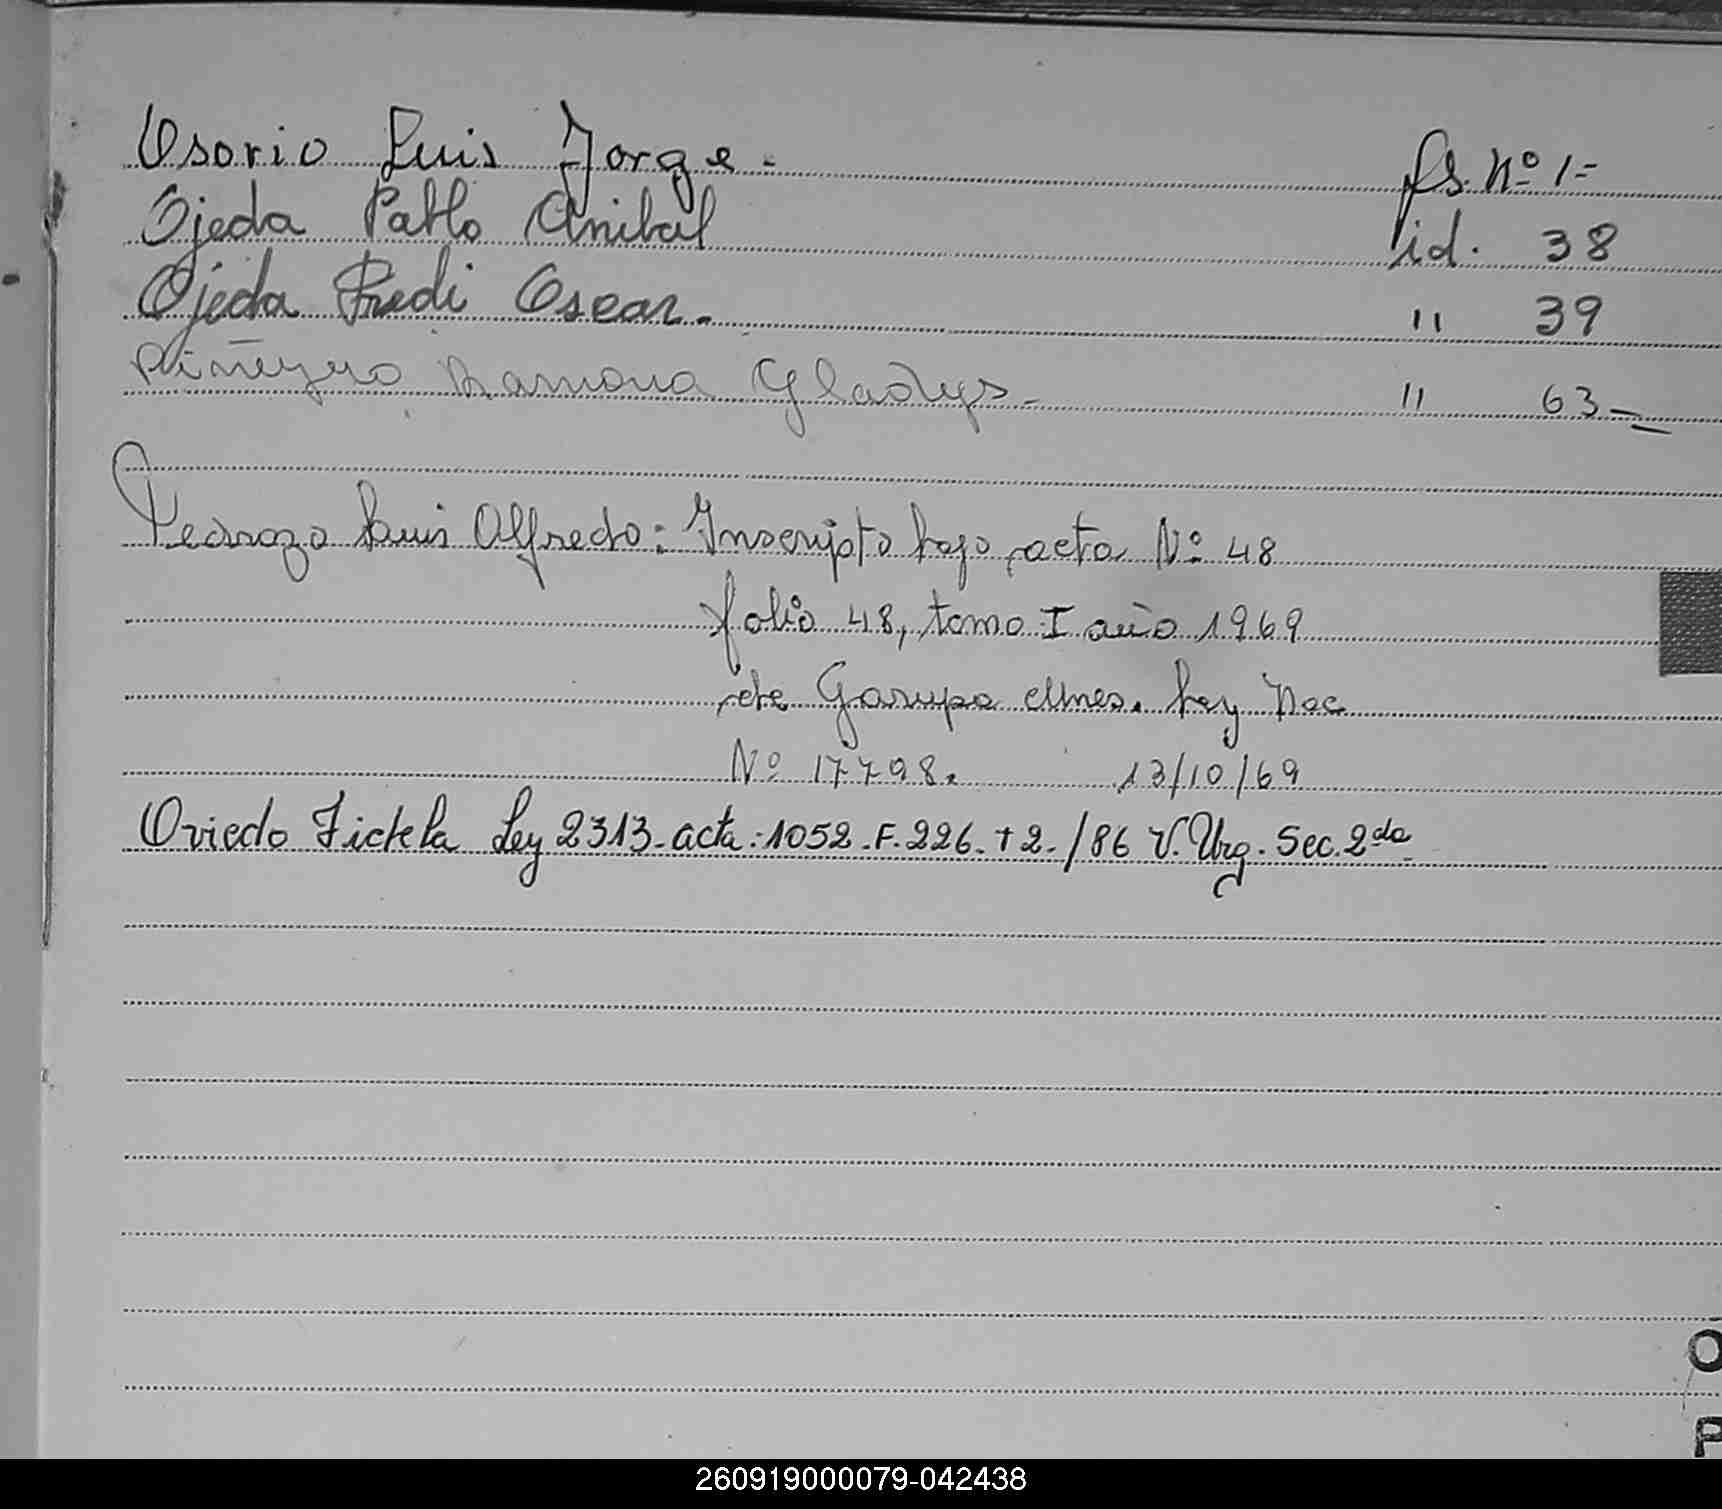 Osorio Luis Jorge - fs. Nº 1 -
Ojeda Pablo Anibal id. 38
Ojeda Fredi Oscar. " 39
Piñeyro Ramona Gladys - " 63 -
Pedrozo Luis Alfredo: Inscripto bajo acta Nº 48
folio 48, tomo I año 1969
de Garupa Mnes. Ley Nac
Nº 17798. 13/10/69
Oviedo Ley 2313 - acta: 1052 - F. 226 - t 2 - /86 V. Urg. Sec. 2da
O
P
260919000079-042438